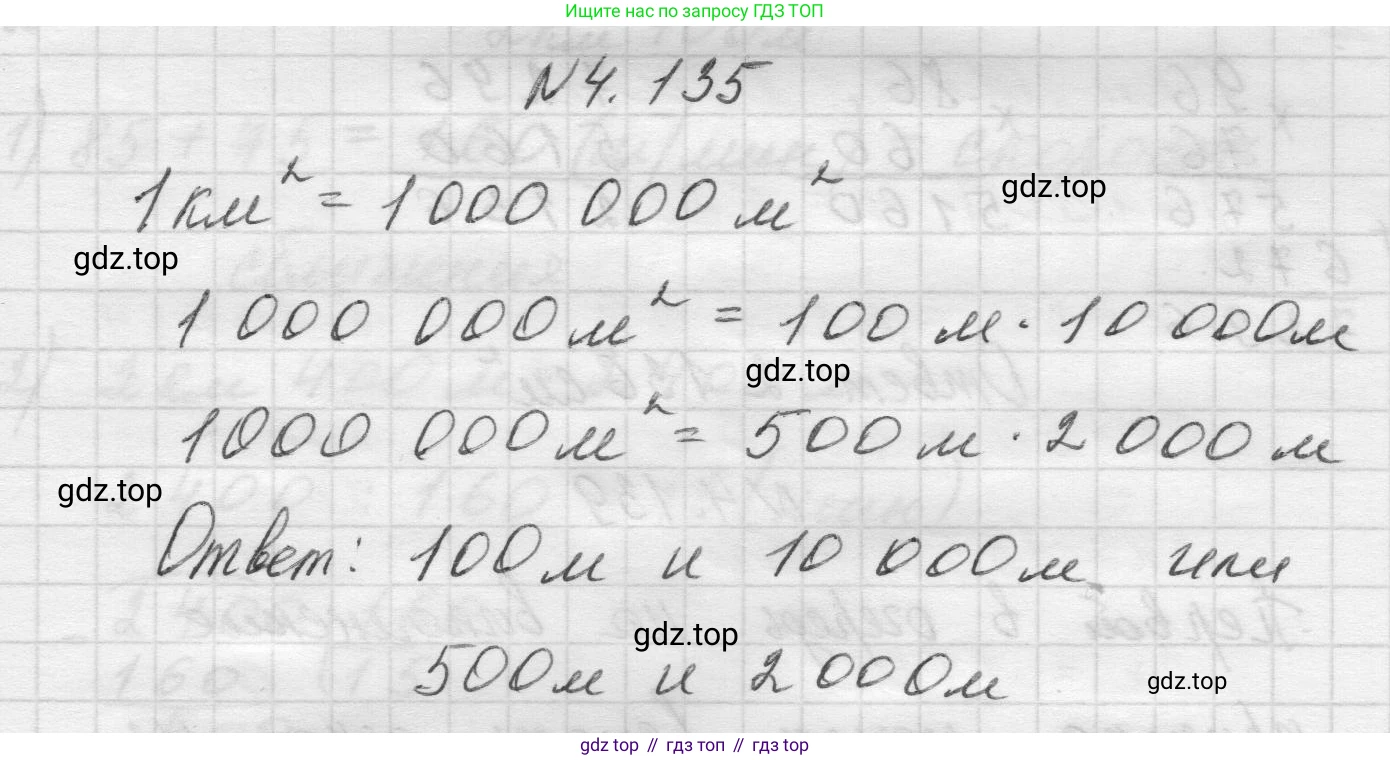 Ищите нас по запросу ГДЗ ТОП
№4.135
1км² = 1 000 000 м²
gdz.top
gdz.top
1 000 000м² = 100 м · 10 000м
gdz.top
1000 000м² = 500 м · 2 000 м
gdz.top
Ответ: 100м и 10 000м или
gdz.top
500м и 2 000м
gdz.top
gdz top // гдз топ // gdz top